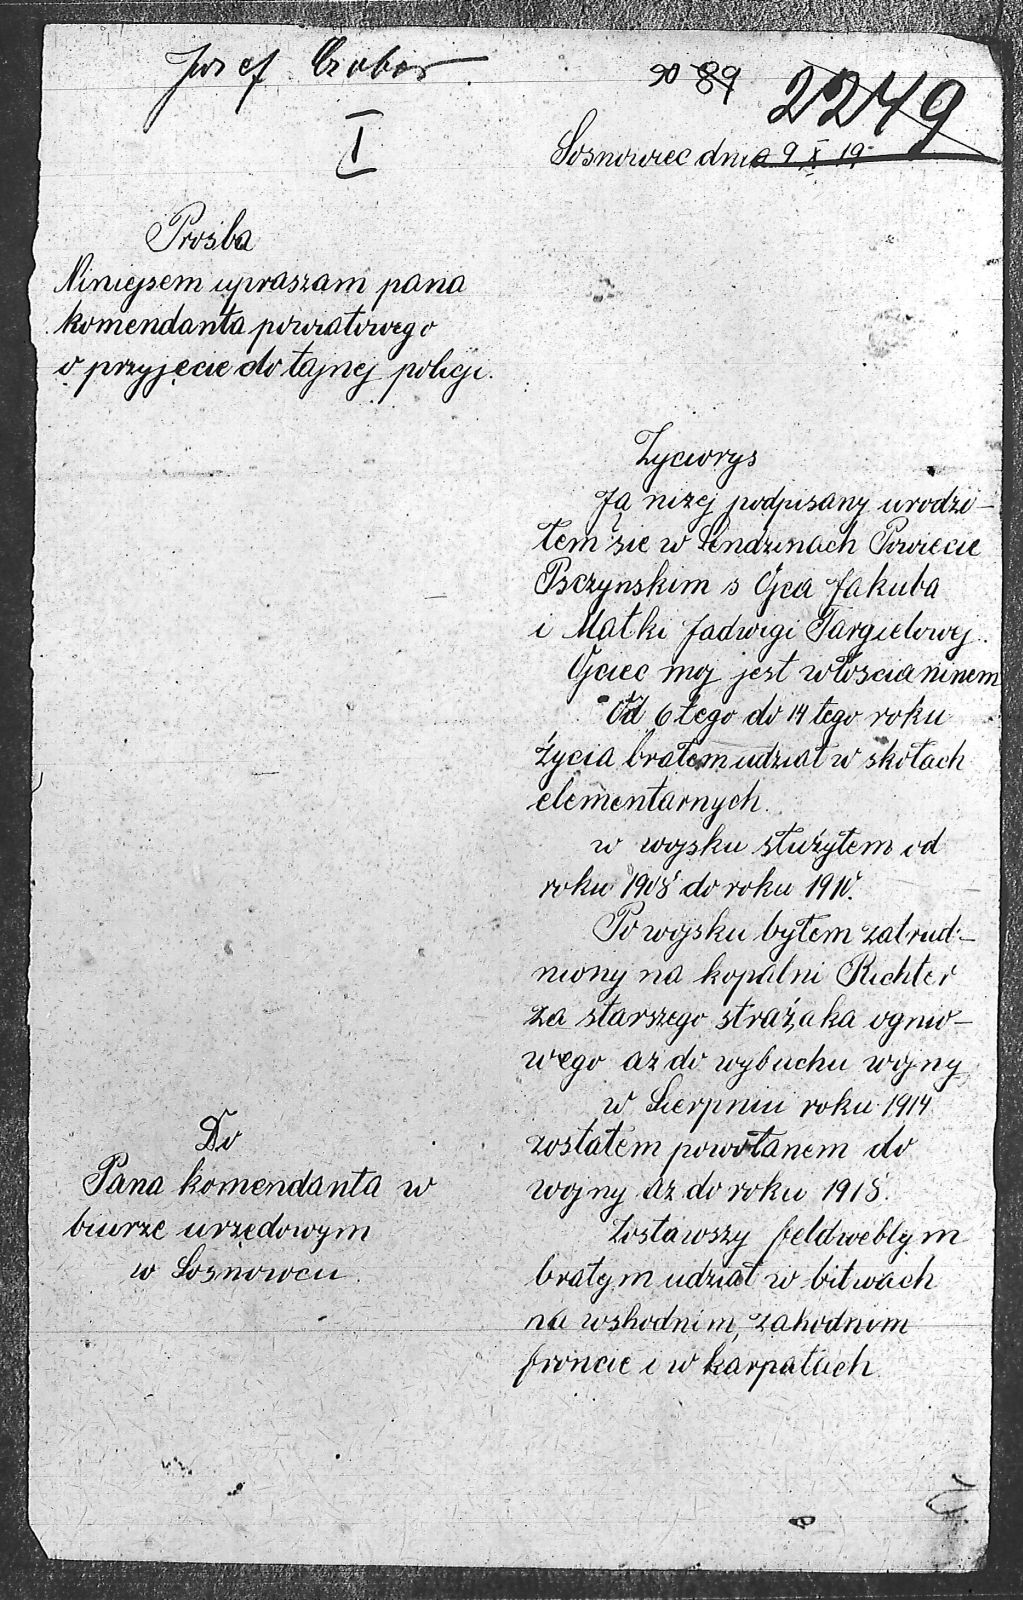 Josef Czober
90 89 2249
I
Sosnowiec dnia 9 X 19
Prosba
Niniejsem upraszam pana
komendanta powiatowego
o przyjęcie do tajnej policji.
Zyciorys
Ja nizej podpisany urodzi-
łem sie w Lendzinach Powiecie
Psczynskim s Ojca Jakuba
i Matki Jadwigi Targielowej.
Ojciec moj jest włoscianinem
Od 6 tego do 14 tego roku
życia brałem udział w skołach
elementarnych.
w wojsku służyłem od
roku 1908 do roku 1910.
Po wojsku byłem zatrud-
niony na kopalni Richter
za starszego strażaka ognio-
wego az do wybuchu wojny
w Sierpniu roku 1914
zostałem powołanem do
wojny az do roku 1918.
Zostawszy feldweblym
brałym udział w bitwach
na wshodnim, zahodnim
froncie i w karpatach.
Do
Pana komendanta w
biurze urzędowym
w Sosnowcu.